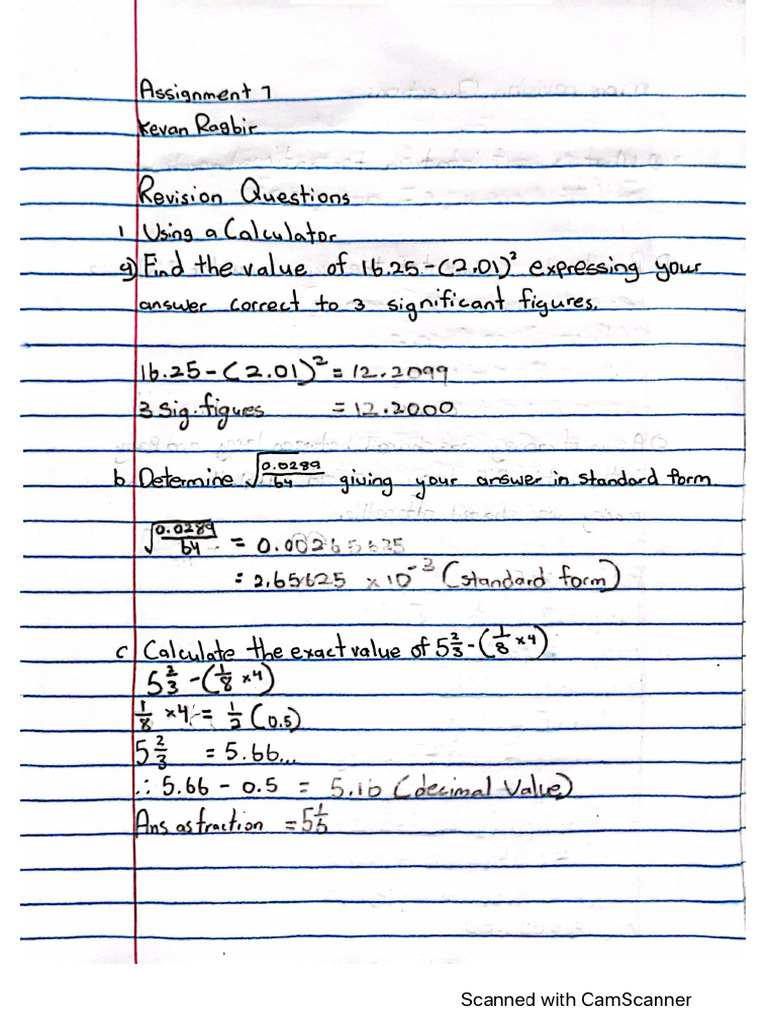 Assignment 1
Kevan Ragbir
Revision Questions
1 Using a Calculator
a) Find the value of 16.25-(2.01)² expressing your
answer correct to 3 significant figures.
16.25-(2.01)² = 12.2099
3 sig.figues = 12.2000
b Determine √(0.0289/64) giving your answer in standard form
√(0.0289/64) = 0.00265625
= 2.65625 ×10⁻³ (standard form)
c Calculate the exact value of 5 2/3 - (1/8 ×4)
5 2/3 - (1/8 ×4)
1/8 ×4 = 1/2 (0.5)
5 2/3 = 5.66...
∴ 5.66 - 0.5 = 5.16 (decimal Value)
Ans as fraction = 5 1/6
Scanned with CamScanner